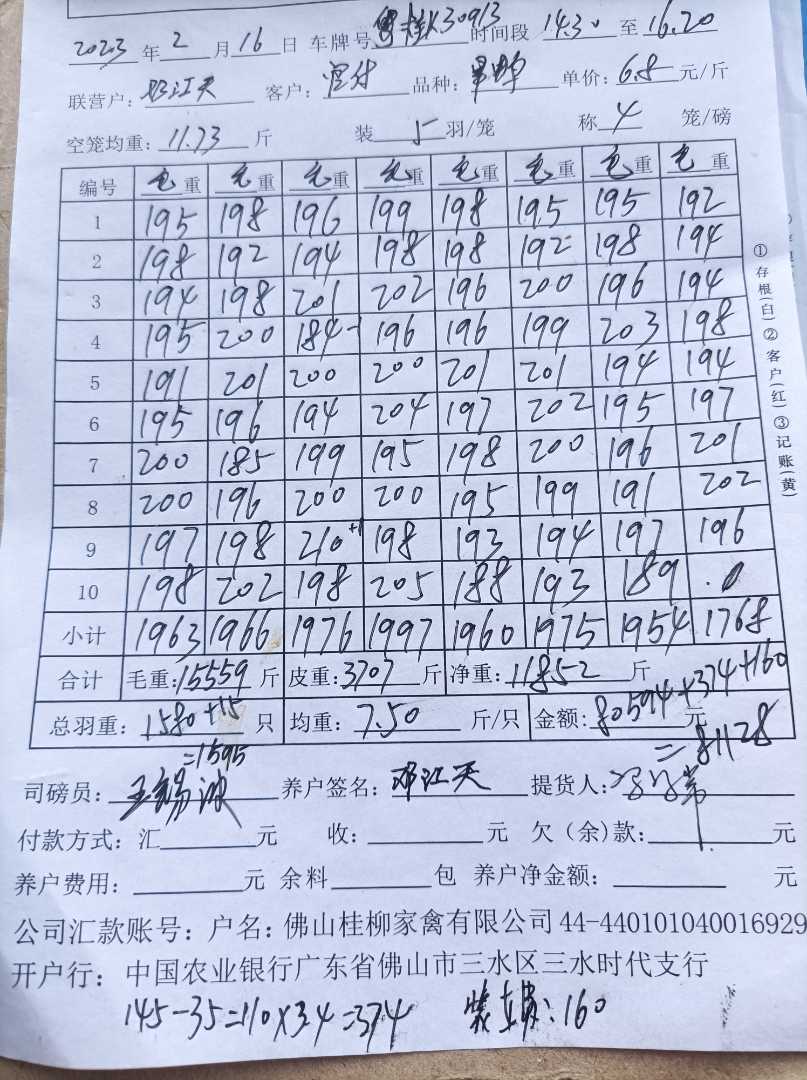 2023年2月16日 车牌号 粤K30913 时间段 14.30至16.20
联营户：邓江天 客户： 品种： 单价：6.8元/斤
空笼均重：11.73斤 装5羽/笼 称4笼/磅
编号 毛重 毛重 毛重 毛重 毛重 毛重 毛重 毛重
1 195 198 196 199 198 195 195 192
2 198 192 194 198 198 192 198 194
3 194 198 201 202 196 200 196 194
4 195 200 184-1 196 196 199 203 198
5 191 201 200 200 201 201 194 194
6 195 196 194 204 197 202 195 197
7 200 185 199 195 198 200 196 201
8 200 196 200 200 195 199 191 202
9 197 198 210+1 198 193 194 197 196
10 198 202 198 205 188 193 189 .0
小计 1963 1966 1976 1997 1960 1975 1954 1768
合计 毛重：15559斤 皮重：3707斤 净重：11852斤
总羽重：1580+15只 均重：7.50斤/只 金额：80594+374+160元
=1595 =81128
司磅员： 养户签名：邓江天 提货人：
付款方式：汇 元 收： 元 欠（余）款： 元
养户费用： 元 余料 包 养户净金额： 元
公司汇款账号：户名：佛山桂柳家禽有限公司 44-440101040016929
开户行：中国农业银行广东省佛山市三水区三水时代支行
145-35=110×3.4=374 装车费：160
①存根(白)②客户(红)③记账(黄)